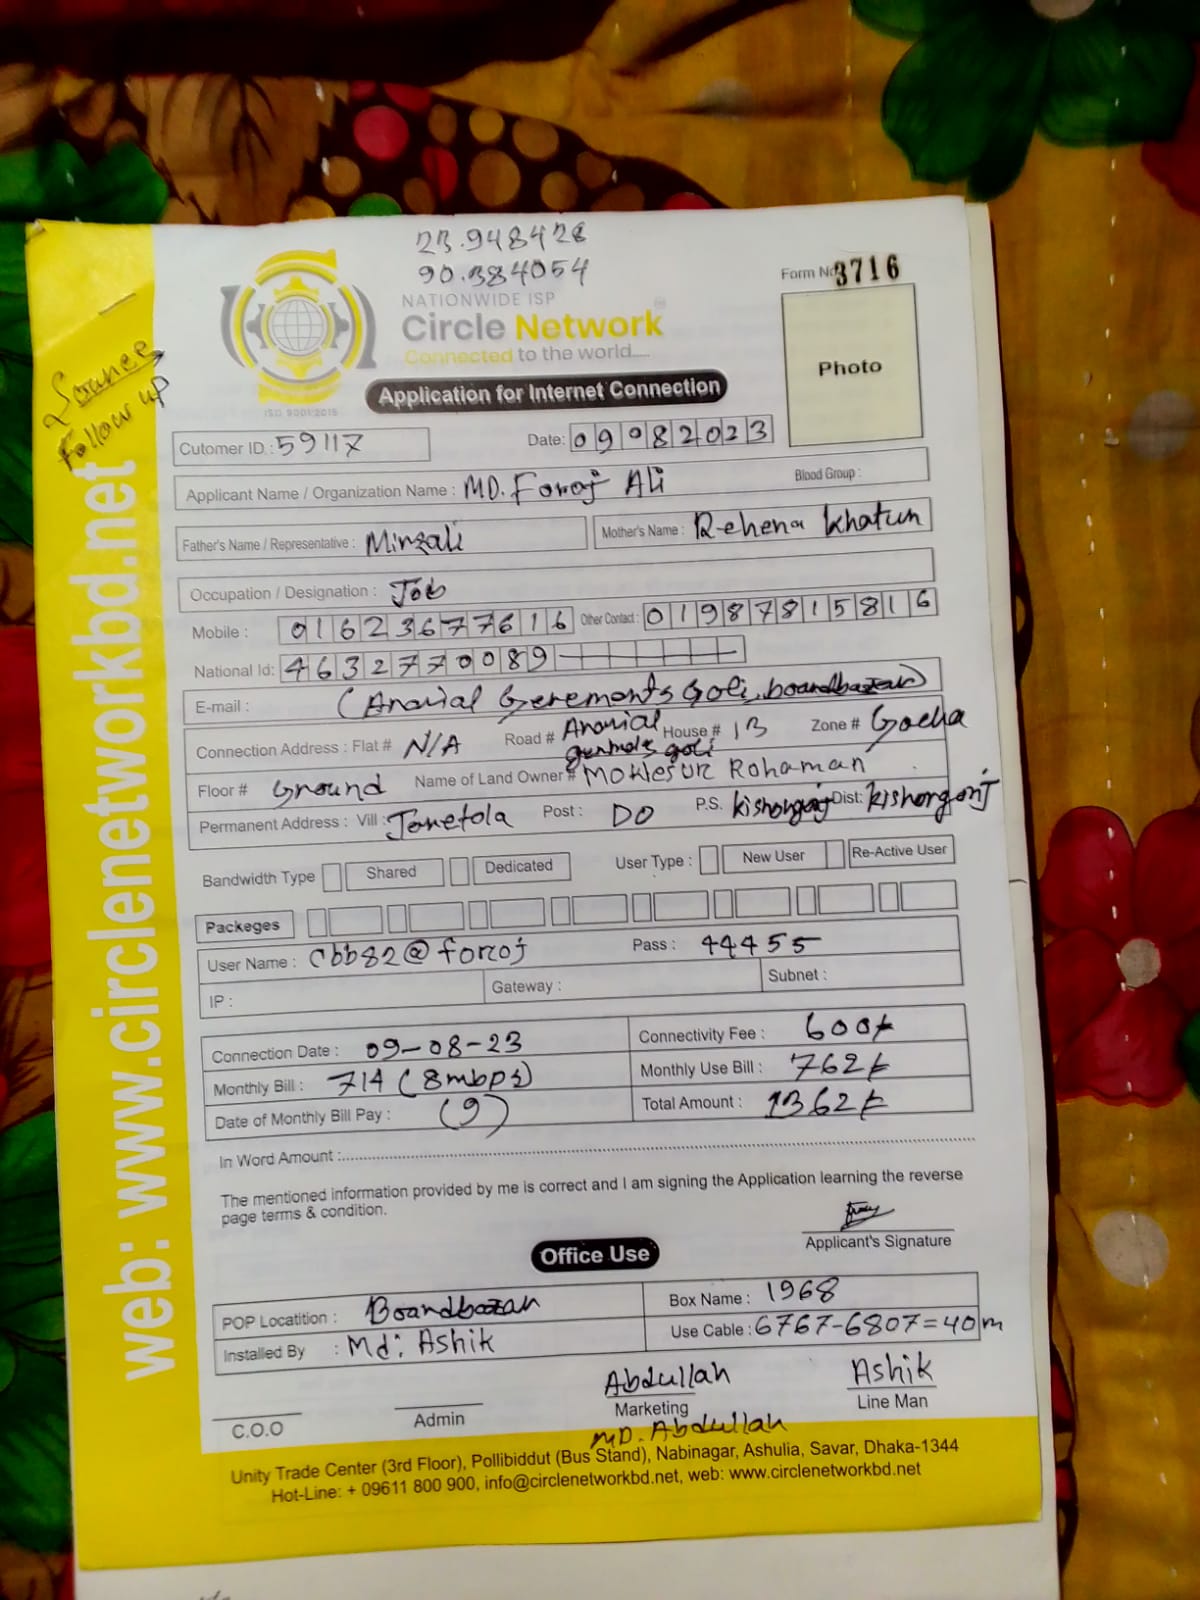 23.948428
90.384054
NATIONWIDE ISP
Circle Network
Connected to the world.....
ISO 9001:2015
Form No 3716
Photo
Application for Internet Connection
Follow up
web: www.circlenetworkbd.net
Cutomer ID : 59117
Date: 09082023
Applicant Name / Organization Name : MD. Foroj Ali
Blood Group :
Father's Name / Representative : Mirzali
Mother's Name : Rehena Khatun
Occupation / Designation : Job
Mobile : 01623677616 Other Contact : 01987815816
National Id: 4632770089
E-mail : (Anarial Gerements Goli, boardbazar)
Connection Address : Flat # N/A Road # Anarial goli House # 13 Zone # Gacha
Floor # Ground Name of Land Owner # Moklesur Rohaman
Permanent Address : Vill : Post : DO P.S. kishorgonj Dist: kishorgonj
Bandwidth Type Shared Dedicated User Type : New User Re-Active User
Packeges
User Name : cbb82@foroj Pass : 44455
IP : Gateway : Subnet :
Connection Date : 09-08-23 Connectivity Fee : 600/-
Monthly Bill : 714 (8mbps) Monthly Use Bill : 762/-
Date of Monthly Bill Pay : (9) Total Amount : 1362/-
In Word Amount :
The mentioned information provided by me is correct and I am signing the Application learning the reverse
page terms & condition.
Applicant's Signature
Office Use
POP Locatition : Boardbazar Box Name : 1968
Installed By : Md: Ashik Use Cable : 6767-6807=40m
Abdullah Ashik
C.O.O Admin Marketing Line Man
MD. Abdullah
Unity Trade Center (3rd Floor), Pollibiddut (Bus Stand), Nabinagar, Ashulia, Savar, Dhaka-1344
Hot-Line: + 09611 800 900, info@circlenetworkbd.net, web: www.circlenetworkbd.net